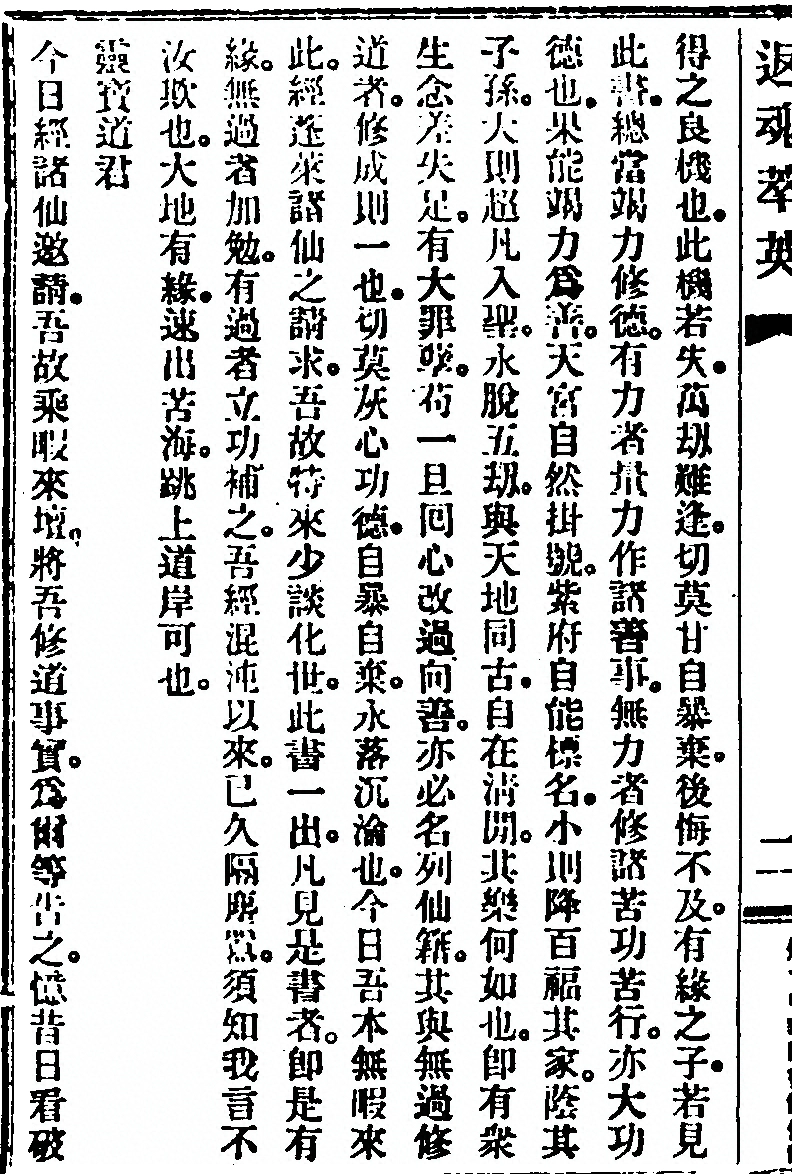 返魂萃英
二
得之良機也。此機若失。萬劫難逢。切莫甘自暴棄。後悔不及。有緣之子。若見
此書。總當竭力修德。有力者量力作諸善事。無力者修諸苦功苦行。亦大功
德也。果能竭力爲善。天宮自然掛號。紫府自能標名。小則降百福其家。蔭其
子孫。大則超凡入聖。永脫五劫。與天地同古。自在清閒。其樂何如也。卽有衆
生念差失足。有大罪孽。苟一旦囘心改過向善。亦必名列仙籍。其與無過修
道者。修成則一也。切莫灰心功德。自暴自棄。永落沉淪也。今日吾本無暇來
此。經蓬萊諸仙之請求。吾故特來少談化世。此書一出。凡見是書者。卽是有
緣。無過者加勉。有過者立功補之。吾經混沌以來。已久隔塵囂。須知我言不
汝欺也。大地有緣。速出苦海。跳上道岸可也。
靈寶道君
今日經諸仙邀請。吾故乘暇來壇。將吾修道事實。爲爾等告之。憶昔日看破